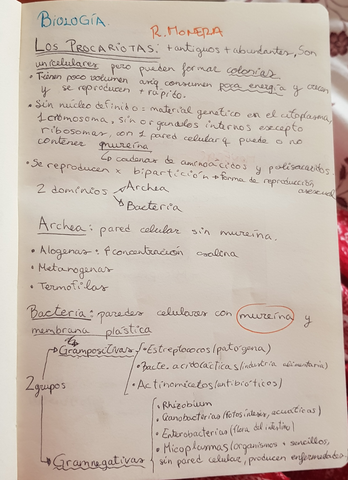 BIOLOGÍA.
R. MONERA
LOS PROCARIOTAS: + antiguos + abundantes, Son
unicelulares pero pueden formar colonias.
• Tienen poco volumen asiq consumen poca energía y crecen
y se reproducen + rápido.
• Sin núcleo definido: material genético en el citoplasma
1 cromosoma, sin organulos internos excepto
ribosomas, con 1 pared celular q puede o no
contener mureína
↳ cadenas de aminoácidos y polisacáridos.
• Se reproducen x bipartición → forma de reproducción
asexual
2 dominios
Archea
Bacteria
Archea: pared celular sin mureína.
• Alogenas: ↑ concentración osalina
• Metanogenas
• Termofilas
Bacteria: paredes celulares con mureína y
membrana plástica
2 grupos
Grampositivas
• Estreptococos (patógena)
• Bacte. acidolácticas (industria alimentaria)
• Actinomicelos (antibióticos)
Gramnegativas
• Rhizobium
• Cianobacterias (fotosíntesis, acuáticas)
• Enterobacterias (flora del intestino)
• Micoplasmas (organismos + sencillos,
sin pared celular, producen enfermedades